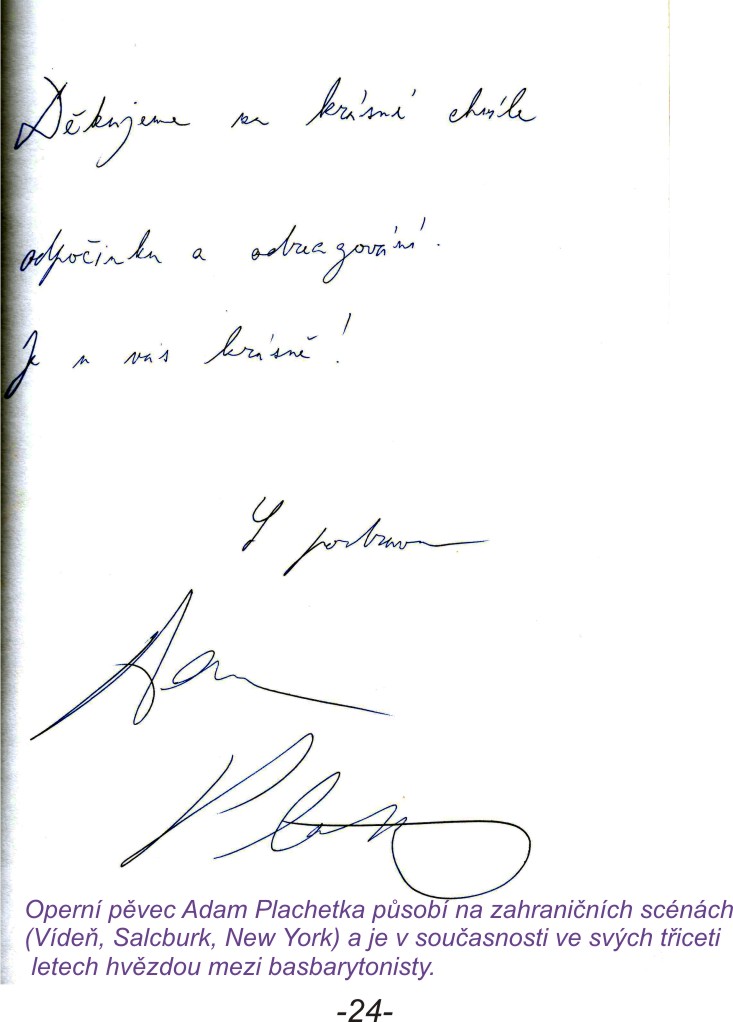 Děkujeme za krásné chvíle
odpočinku a
Je u vás krásně!
S pozdravem
Adam
Operní pěvec Adam Plachetka působí na zahraničních scénách
(Vídeň, Salcburk, New York) a je v současnosti ve svých třiceti
letech hvězdou mezi basbarytonisty.
-24-